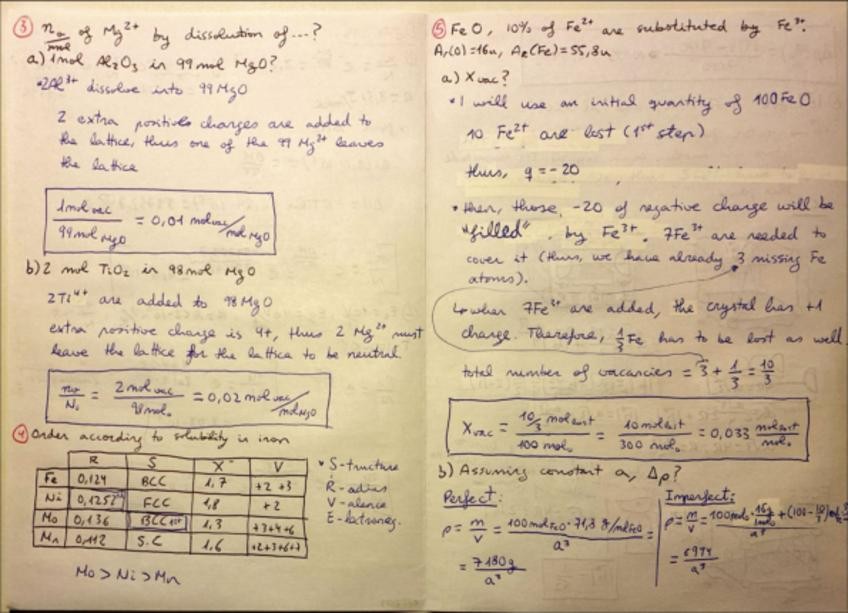 ③ n_v/mol of Mg²⁺ by dissolution of...?
a) 1mol Al₂O₃ in 99 mol MgO?
• 2Al³⁺ dissolve into 99MgO
2 extra positive charges are added to
the lattice, thus one of the 99 Mg²⁺ leaves
the lattice
1 mol vac / 99 mol MgO = 0,01 mol vac/mol MgO
b) 2 mol TiO₂ in 98 mol MgO
2Ti⁴⁺ are added to 98 MgO
extra positive charge is 4+, thus 2 Mg²⁺ must
leave the lattice for the lattice to be neutral.
n_v/N_i = 2 mol vac / 98 mol. = 0,02 mol vac/mol MgO
④ Order according to solubility in iron
R S X V
Fe 0,124 BCC 1,7 +2 +3
Ni 0,125 FCC 1,8 +2
Mo 0,136 BCC 1,3 +3+4+6
Mn 0,112 S.C 1,6 +2+3+6+7
• S-tructure
R-adius
V-alence
E-lectroneg.
Mo > Ni > Mn
⑤ FeO, 10% of Fe²⁺ are substituted by Fe³⁺.
Ar(O)=16u, Ar(Fe)=55,8u
a) Xvac?
• I will use an initial quantity of 100 FeO
10 Fe²⁺ are lost (1st step)
thus, q = -20
• then, those, -20 of negative charge will be
"filled" by Fe³⁺. 7Fe³⁺ are needed to
cover it (thus, we have already 3 missing Fe
atoms).
↳ when 7Fe³⁺ are added, the crystal has +1
charge. Therefore, 1/3 Fe has to be lost as well.
total number of vacancies = 3 + 1/3 = 10/3
Xvac = 10/3 mol lost / 100 mol. = 10 mol lost / 300 mol. = 0,033 mol lost / mol.
b) Assuming constant a, Δρ?
Perfect:
ρ = m/V = 100 mol FeO · 71,8 g/mol FeO / a³ =
= 7180g / a³
Imperfect:
ρ = m/V = 100 mol O · 16g/1mol O + (100 - 10/3) / a³
= 6994 / a³